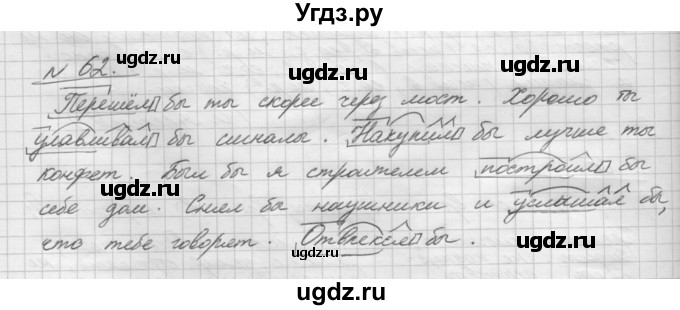 Угдз.ру
ugdz.ru ugdz.ru
№ 62.
ugdz.ru ugdz.ru
Перешёл бы ты скорее через мост. Хорошо ты
улавливал бы сигналы. Накупил бы лучше ты
ugdz.ru ugdz.ru
конфет. Был бы я строителем построил бы
себе дом. Снял бы наушники и услышал бы,
что тебе говорят. Отвлекся бы.
ugdz.ru ugdz.ru
ugdz.ru